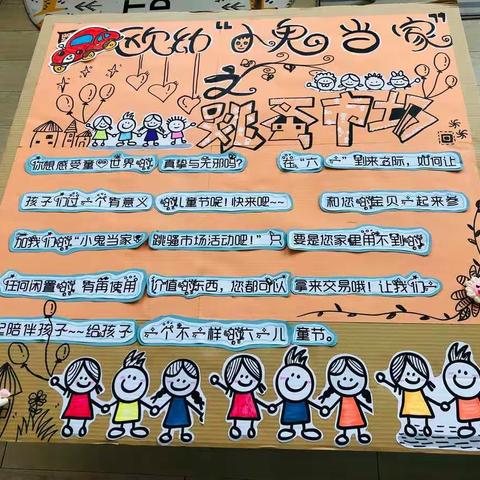 欧幼“小鬼当家”
之
跳蚤市场
你想感受童心世界的真挚与无邪吗？在“六一”到来之际，如何让
孩子们过一个有意义的儿童节呢！快来吧~~和您的宝贝一起来参
加我们的“小鬼当家跳骚市场活动吧！”只要是您家里用不到的
任何闲置的有再使用价值的东西，您都可以拿来交易哦！让我们一
起陪伴孩子~~给孩子一个不一样的六一儿童节。